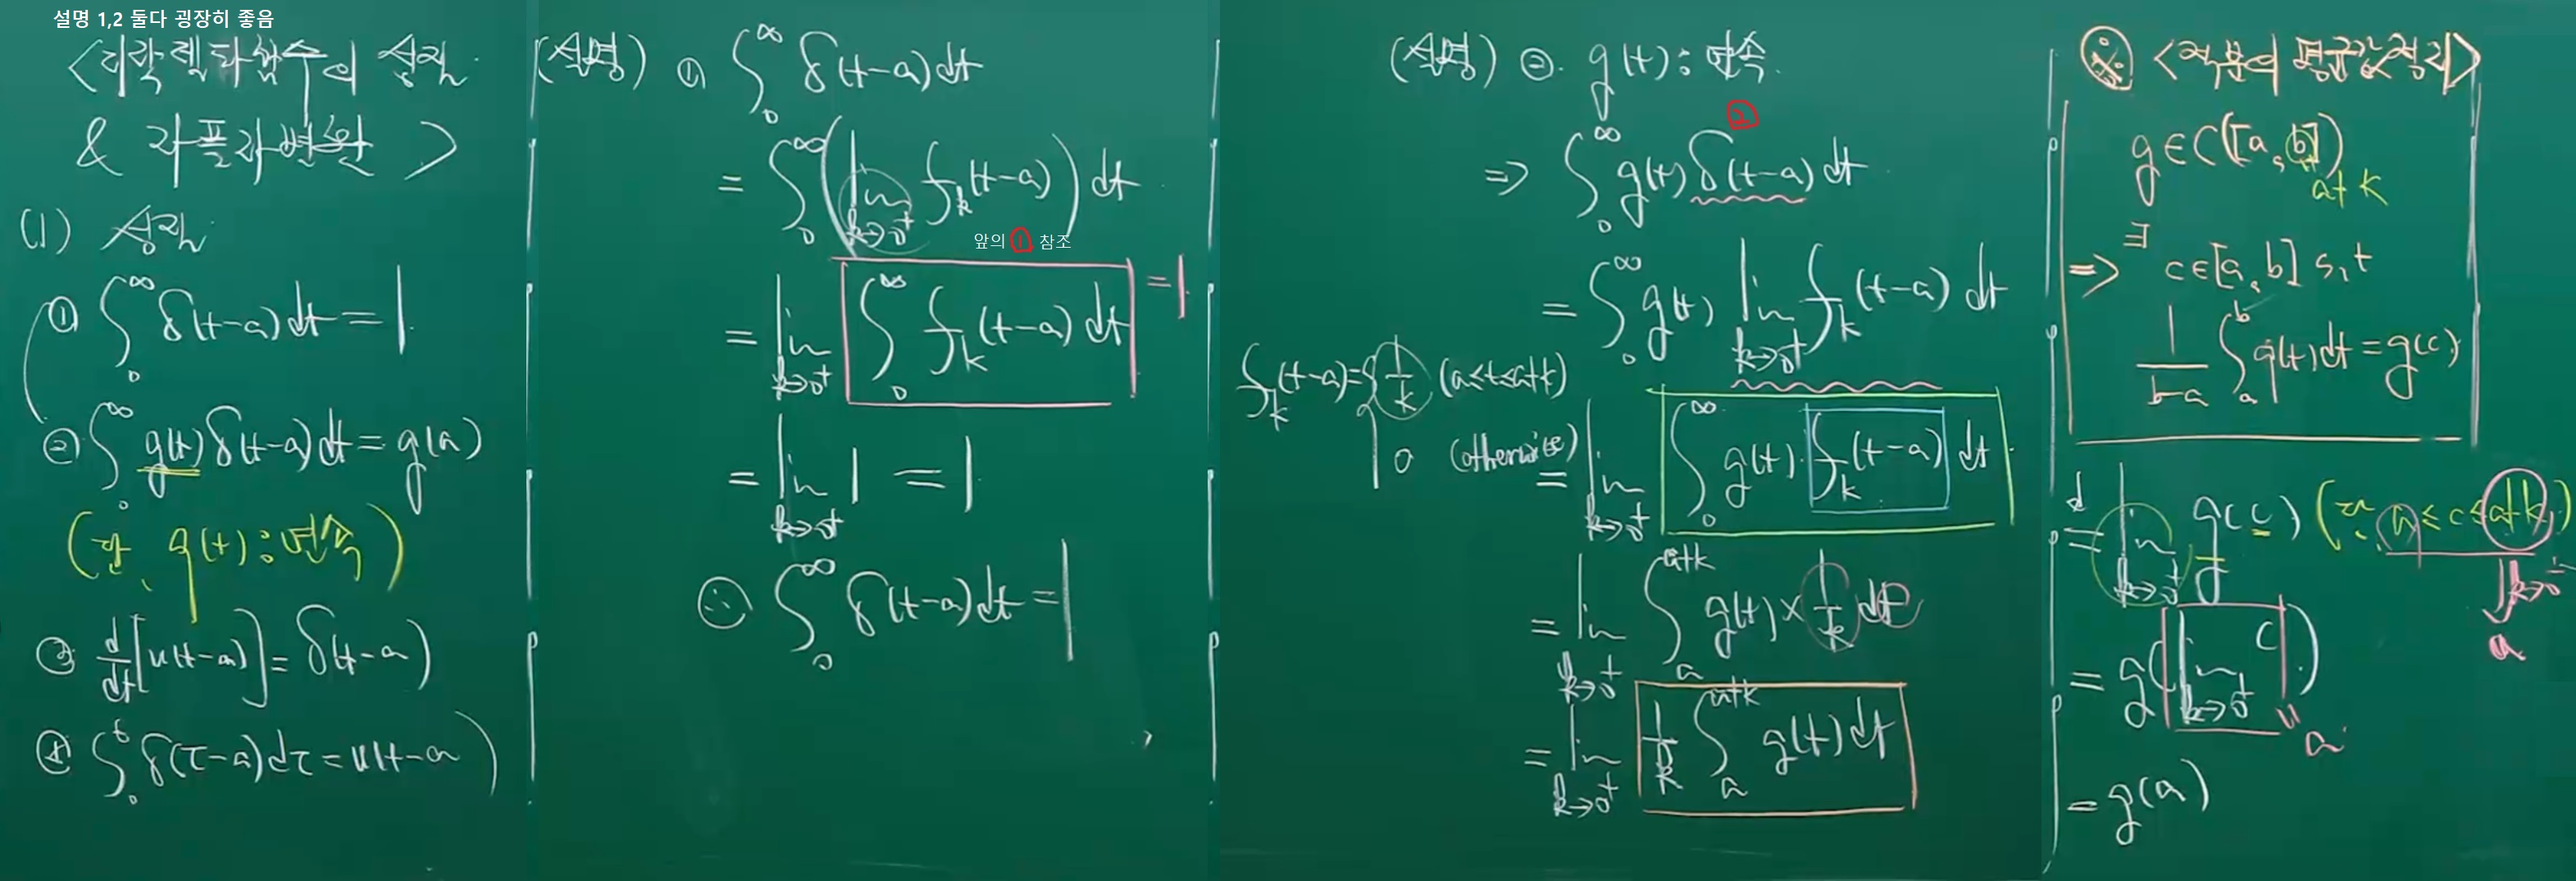 설명 1,2 둘다 굉장히 좋음
<디락델타함수의 성질
& 라플라스변환>
(1) 성질
① ∫₀^∞ δ(t-a)dt = 1
② ∫₀^∞ g(t)δ(t-a)dt = g(a)
(단, g(t):연속)
③ d/dt[u(t-a)] = δ(t-a)
④ ∫₀^t δ(τ-a)dτ = u(t-a)
(설명) ① ∫₀^∞ δ(t-a)dt
= ∫₀^∞ (lim k→0⁺ f_k(t-a)) dt
앞의 1 참조
= lim k→0⁺ ∫₀^∞ f_k(t-a)dt = 1
= lim k→0⁺ 1 = 1
∴ ∫₀^∞ δ(t-a)dt = 1
(설명) ② g(t):연속
2
⇒ ∫₀^∞ g(t)δ(t-a)dt
= ∫₀^∞ g(t) lim k→0⁺ f_k(t-a) dt
f_k(t-a) = { 1/k (a≤t≤a+k)
0 (otherwise)
= lim k→0⁺ ∫₀^∞ g(t)·f_k(t-a) dt
= lim k→0⁺ ∫ₐ^(a+k) g(t)×1/k dt
= lim k→0⁺ 1/k ∫ₐ^(a+k) g(t)dt
※ <적분의 평균값정리>
g∈C([a,b])
a+k
⇒ ∃ c∈[a,b] s,t
1/(b-a) ∫ₐ^b g(t)dt = g(c)
= lim k→0⁺ g(c) (단, a≤c≤a+k)
↓k→0⁺
a
= g(lim k→0⁺ c)
" a
= g(a)